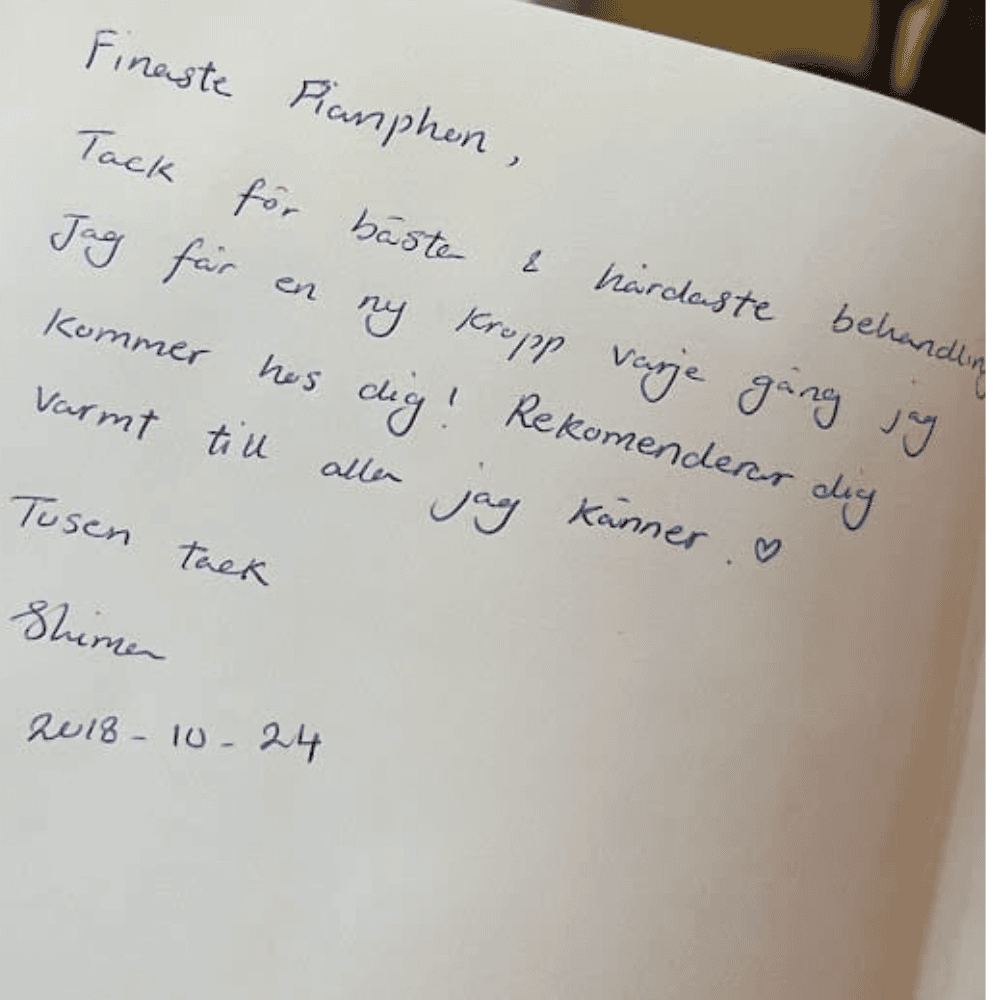 Finaste Pianphen,
Tack för bästa & hårdaste behandling
Jag får en ny kropp varje gång jag
kommer hos dig! Rekomenderar dig
varmt till alla jag känner. ♡
Tusen tack
Shiman
2018-10-24